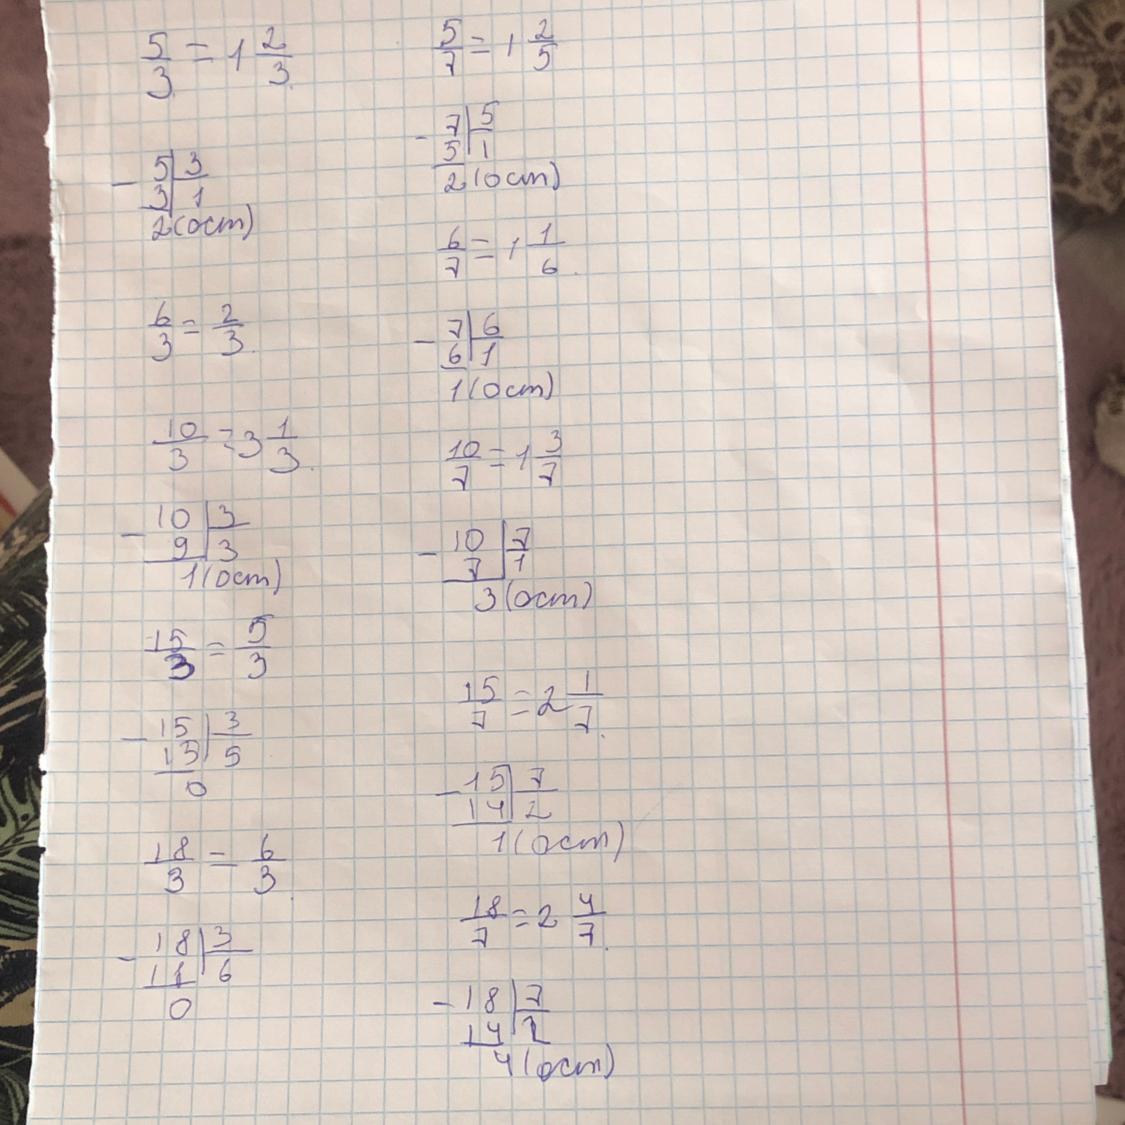 5/3 = 1 2/3
- 5 | 3
3 | 1
2 (ост)
6/3 = 2/3
10/3 = 3 1/3
- 10 | 3
9 | 3
1 (ост)
15/3 = 5/3
- 15 | 3
15 | 5
0
18/3 = 6/3
- 18 | 3
6
0
5/7 = 1 2/5
- 7 | 5
5 | 1
2 (ост)
6/7 = 1 1/6
- 7 | 6
6 | 1
1 (ост)
10/7 = 1 3/7
- 10 | 7
7 | 1
3 (ост)
15/7 = 2 1/7
- 15 | 7
14 | 2
1 (ост)
18/7 = 2 4/7
- 18 | 7
14 | 2
4 (ост)